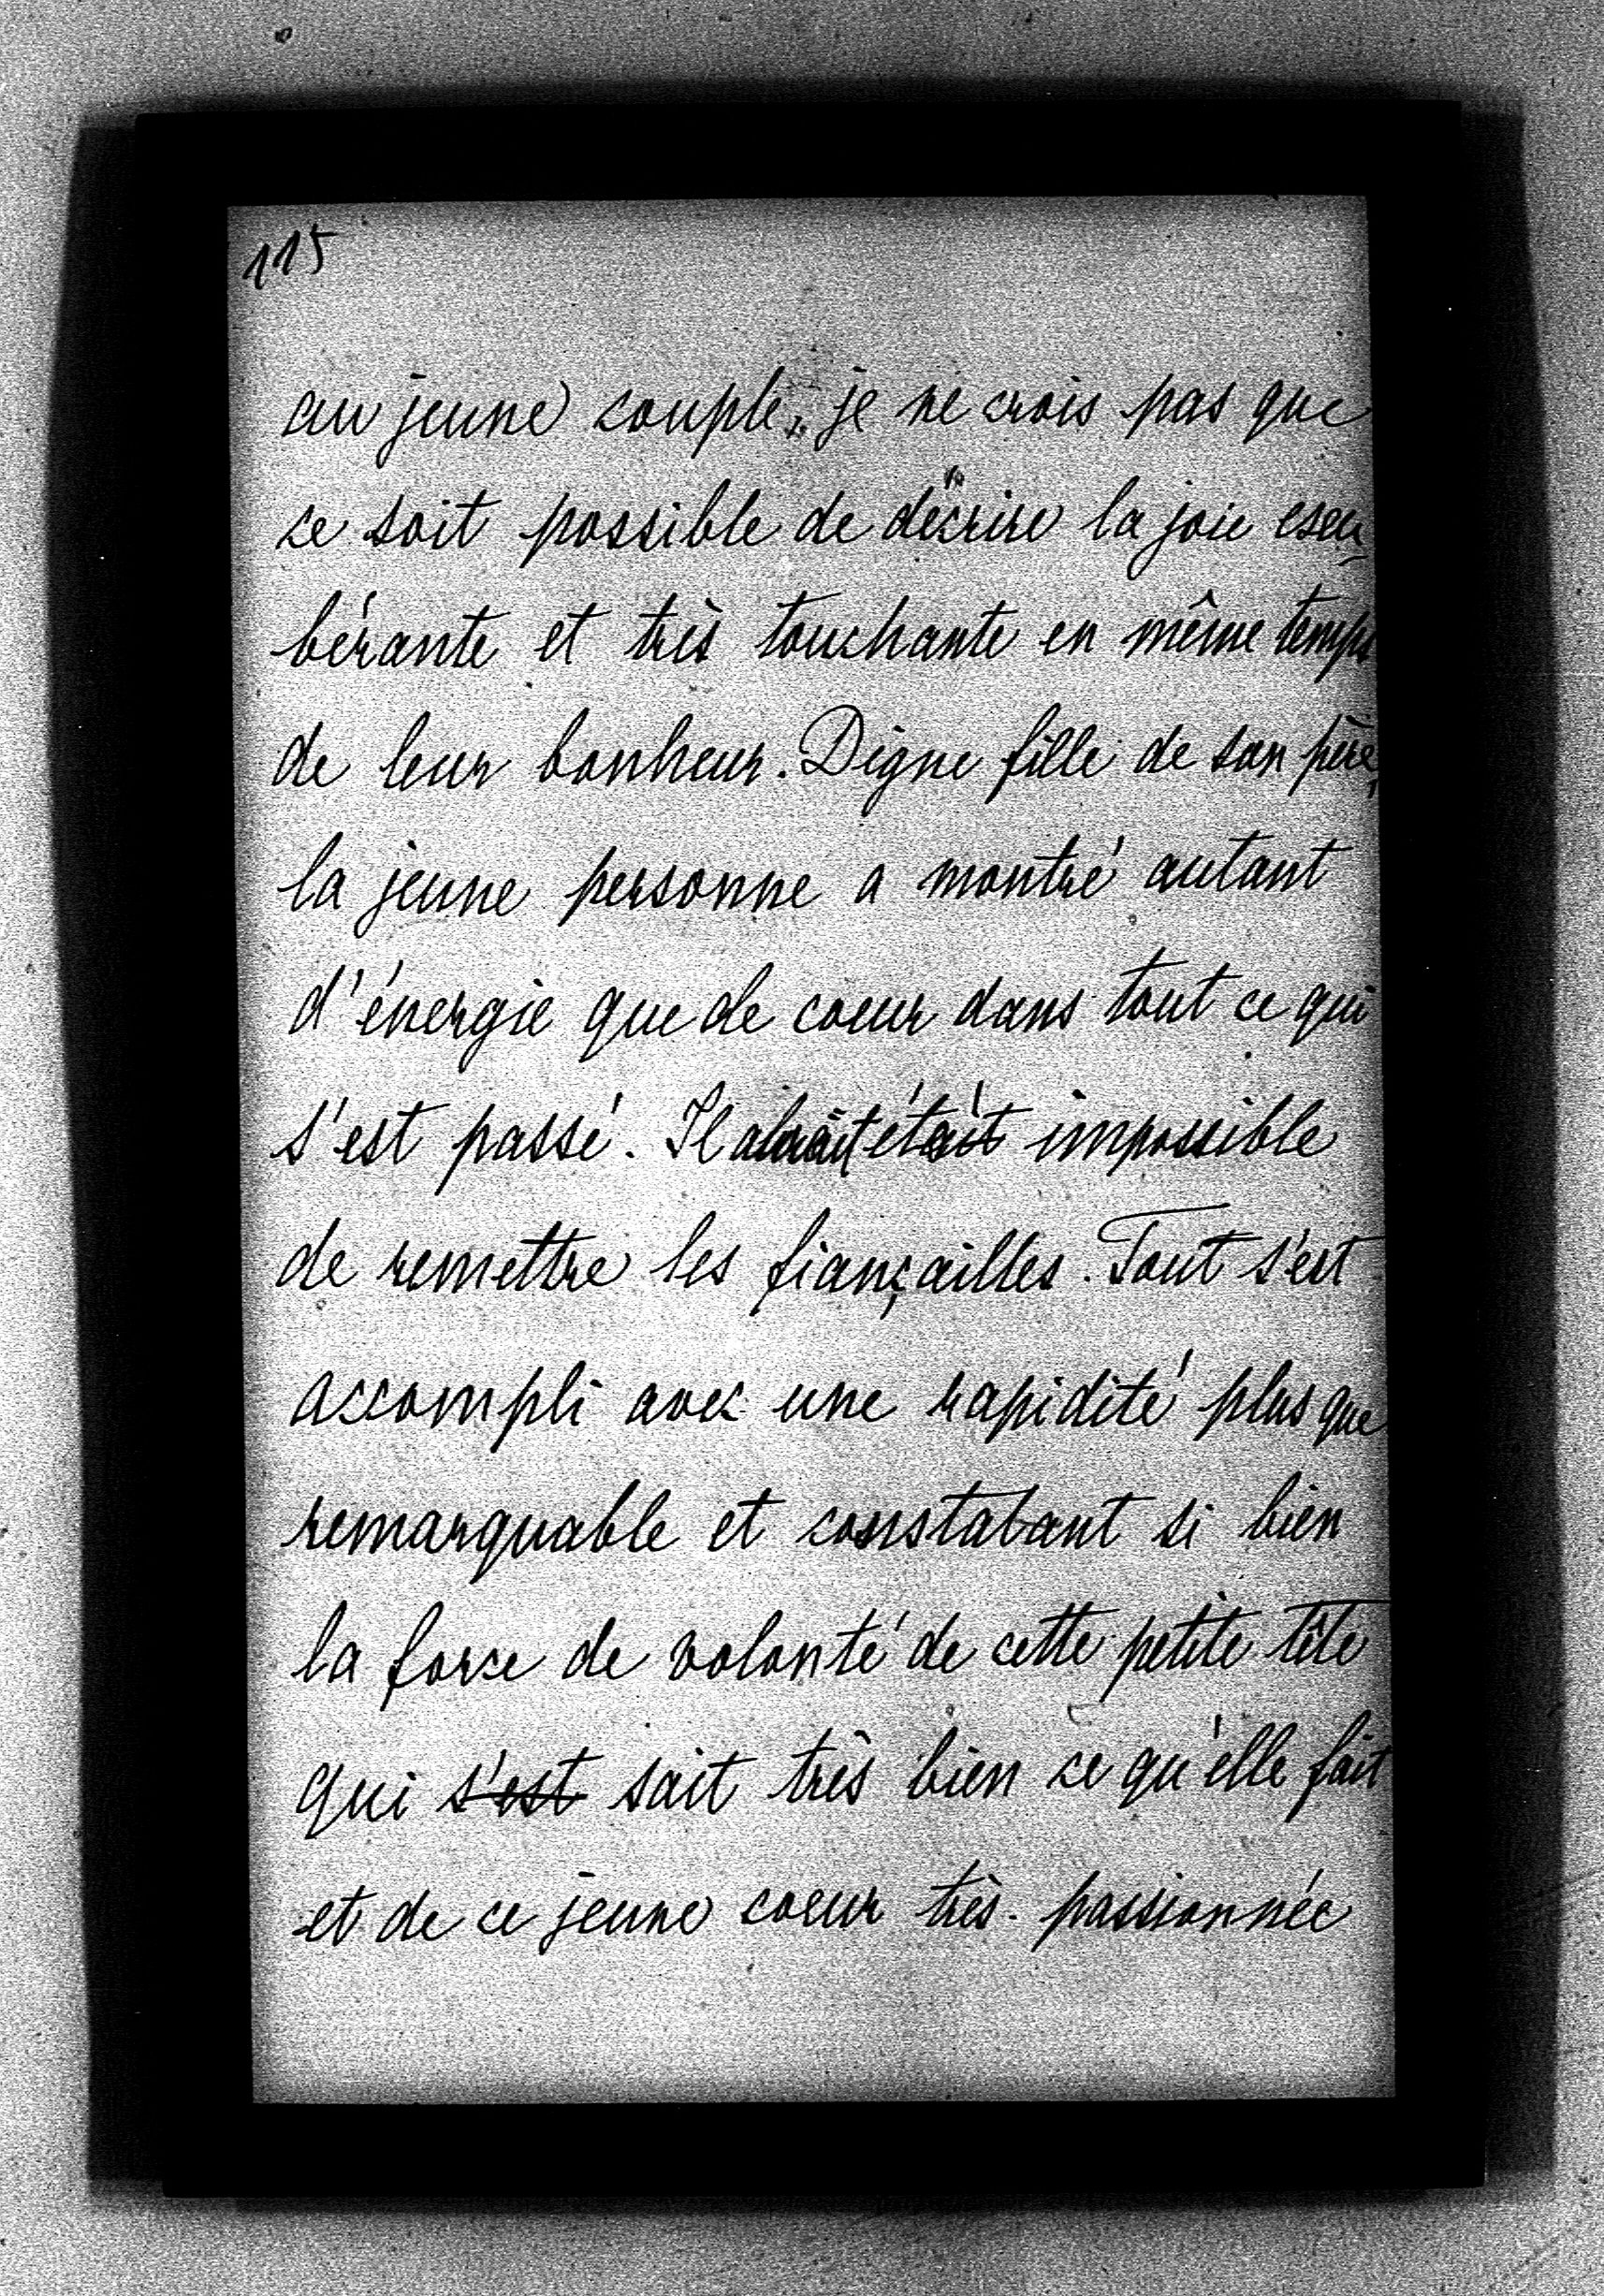 115
au jeune couple, je ne crois pas que
ce soit possible de décrire la joie exeu-
bérante et très touchante en même temps
de leur bonheur. Digne fille de son père,
la jeune personne a montré autant
d'énergie que de coeur dans tout ce qui
s'est passé. Il était impossible
de remettre les fiançailles. Tout s'est
accompli avec une rapidité plus que
remarquable et constatant si bien
la force de volonté de cette petite tête
qui s'est sait très bien ce qu'elle fait
et de ce jeune coeur très passionnée